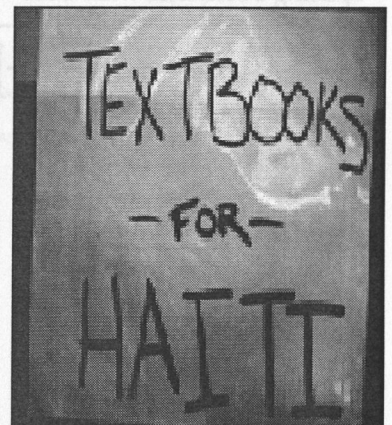 TEXTBOOKS
-FOR-
HAITI